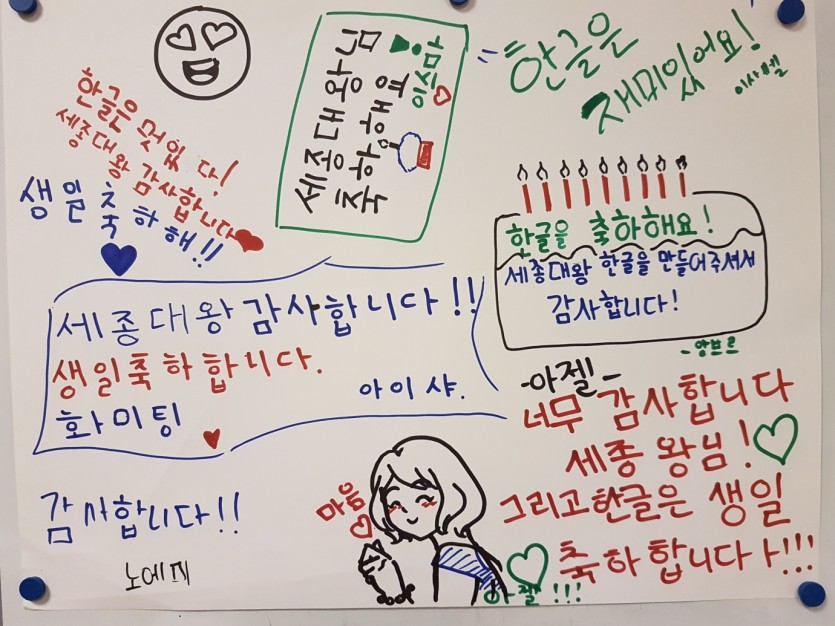 한글은 멋있다!
세종대왕 감사합니다
생일 축하해!!
세종대왕님
축하해요
한글은
재미있어요!
이사벨
한글을 축하해요!
세종대왕 한글을 만들어주셔서
감사합니다!
-앙브르
세종대왕 감사합니다!!
생일축하합니다.
화미팅
아이샤.
-아젤-
너무 감사합니다
세종 왕님!
그리고한글은 생일
축하합니다ㅏ!!!
마음
감사합니다!!
노에미
아젤 !!!